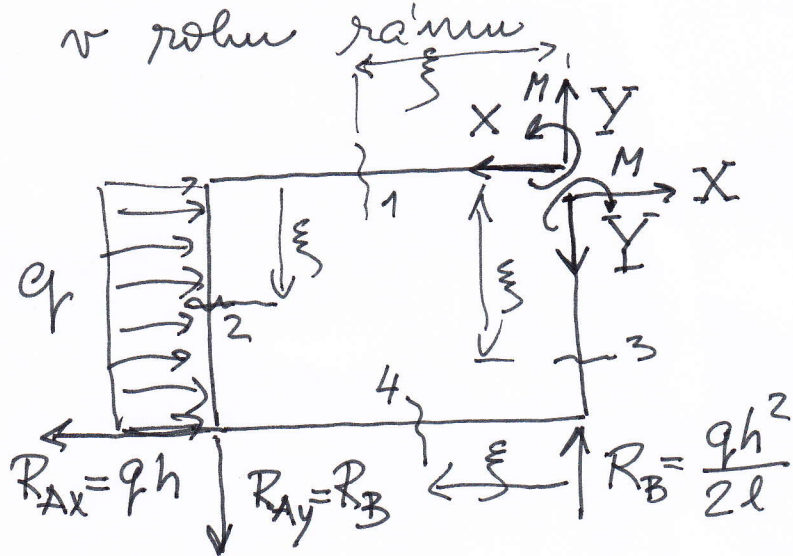 v rohu rámu
ξ
M Y
X
M X
1
Y
ξ
ξ
q
2
3
4
ξ
R_Ax = qh
R_Ay = R_B
R_B = qh²/2l